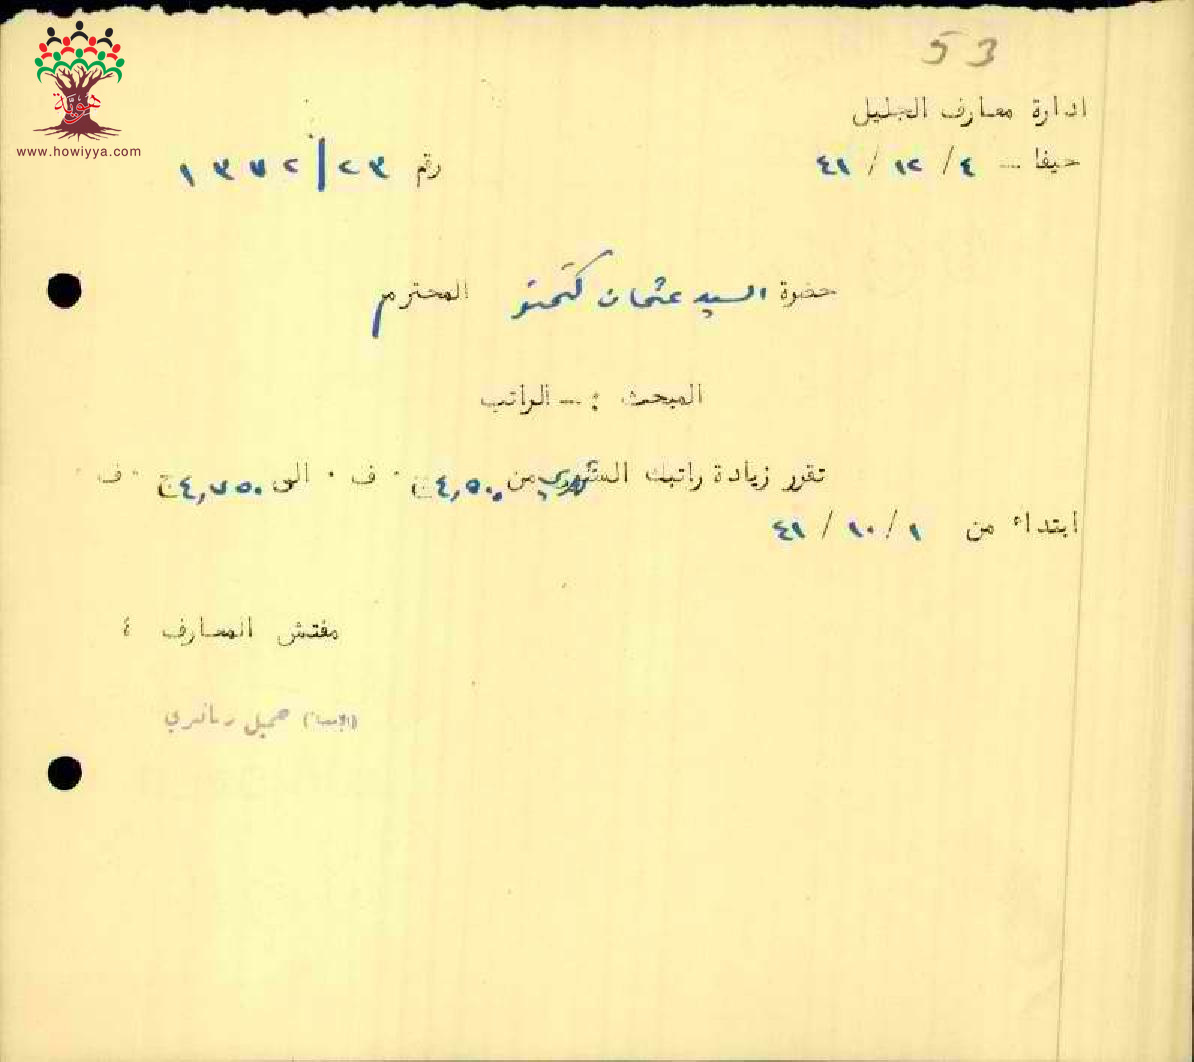 53
ادارة معارف الجليل
حيفا – ٤ / ١٢ / ٤١
رقم ٢٣/١٣٧٢
حضرة السيد عثمان كتمتو المحترم
المبحث :– الراتب
تقرر زيادة راتبك الشهري من ٤,٥٠٠ ج ٠ ف ٠ الى ٤,٧٥٠ ج ٠ ف ٠
ابتداء من ١ / ١٠ / ٤١
مفتش المعارف ٤
(الامضاء) جميل
هويّة
www.howiyya.com